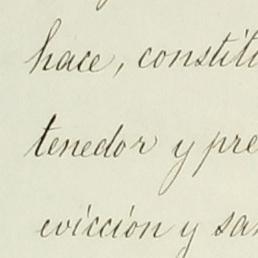 hace, constitu
tenedor y pre
evicción y sa